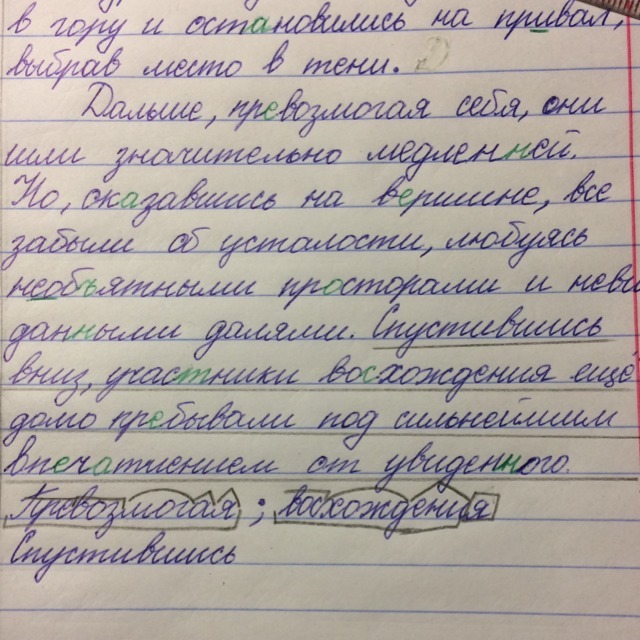 в гору и остановились на привал,
выбрав место в тени. 2)
Дальше, превозмогая себя, они
шли значительно медленней.
Но, сказавшись на вершине, все
забыли об усталости, любуясь
необъятными просторами и неви
данными далями. Спустившись
вниз, участники восхождения ещё
домо пребывали под сильнейшим
впечатлением от увиденного.
Превозмогая ; восхождения
Спустившись